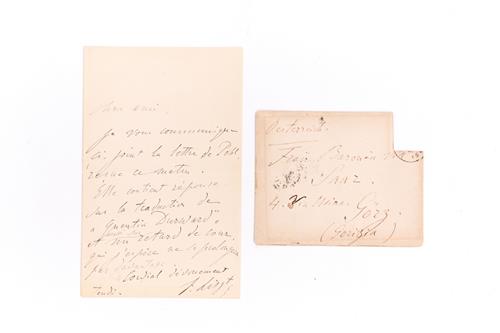 Cher ami,
Je vous communique
ci-joint la lettre de Pohl
reçue ce matin.
Elle contient réponse
sur la traduction de
"Quentin Durward"
et un retard de cour
qui j'espère ne se prolongera
pas davantage
Cordial dévouement
F. Liszt
Oesterreich.
Frau Baronin
Görz
(Gorizia)